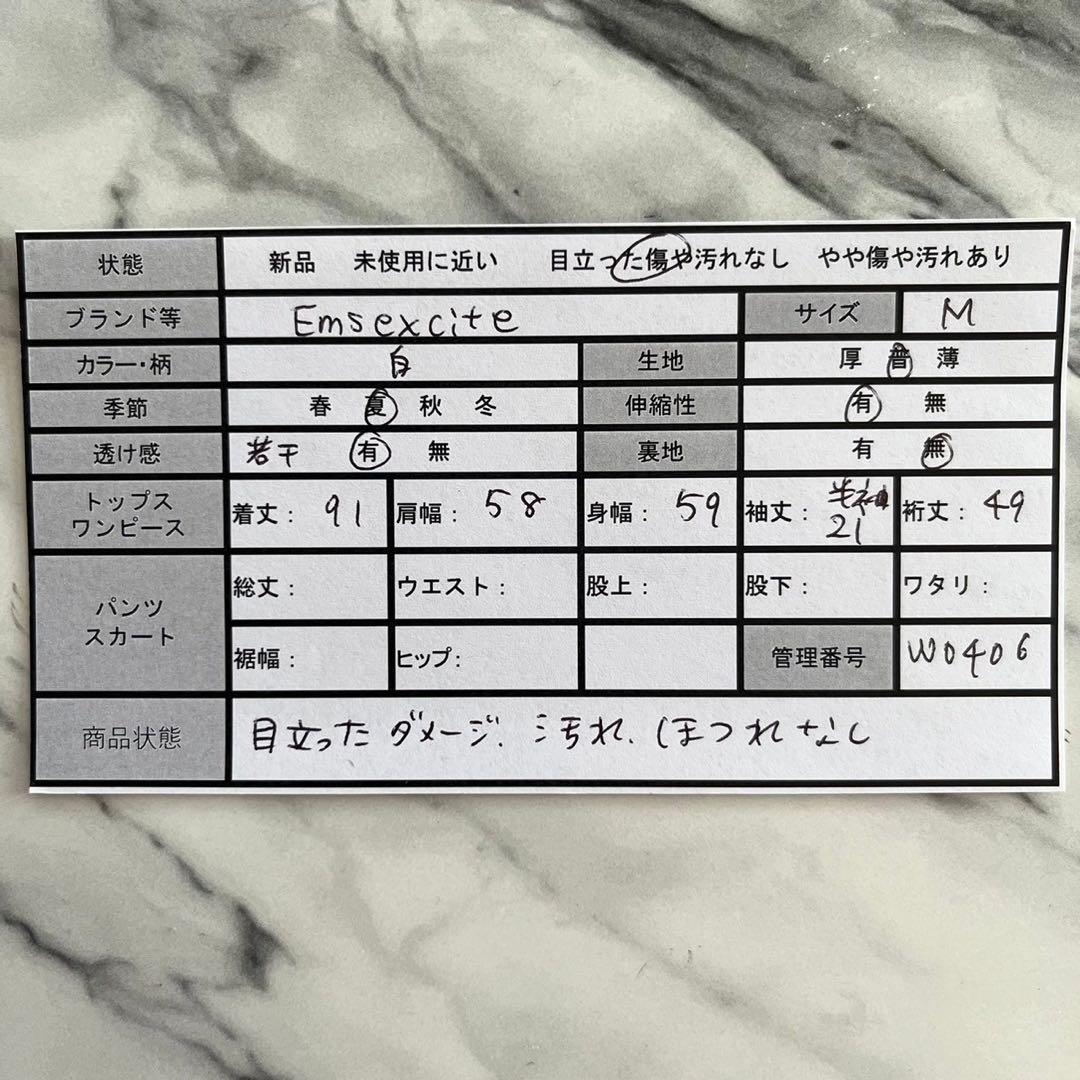 状態 新品 未使用に近い 目立った傷や汚れなし やや傷や汚れあり
ブランド等 Emsexcite サイズ M
カラー・柄 白 生地 厚 普 薄
季節 春 夏 秋 冬 伸縮性 有 無
透け感 若干 有 無 裏地 有 無
トップス
ワンピース
着丈： 91 肩幅： 58 身幅： 59 袖丈： 半袖 21 裄丈： 49
パンツ
スカート
総丈： ウエスト： 股上： 股下： ワタリ：
裾幅： ヒップ： 管理番号 W0406
商品状態 目立ったダメージ、汚れ、ほつれなし